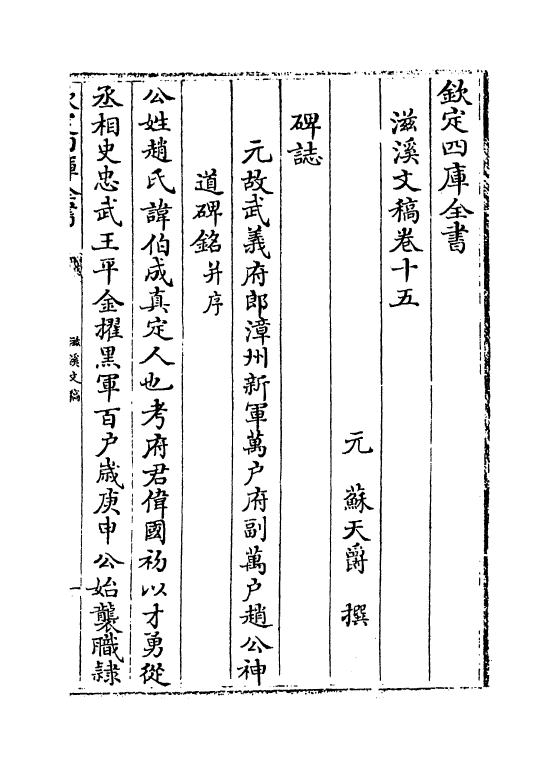 欽定四庫全書
滋溪文稿卷十五
元 蘇天爵 撰
碑誌
元故武義府郎漳州新軍萬户府副萬户趙公神
道碑銘并序
公姓趙氏諱伯成真定人也考府君偉國初以才勇從
丞相史忠武王平金擢黑軍百户歲庚申公始襲職隷
欽定四庫全書
滋溪文稿
一